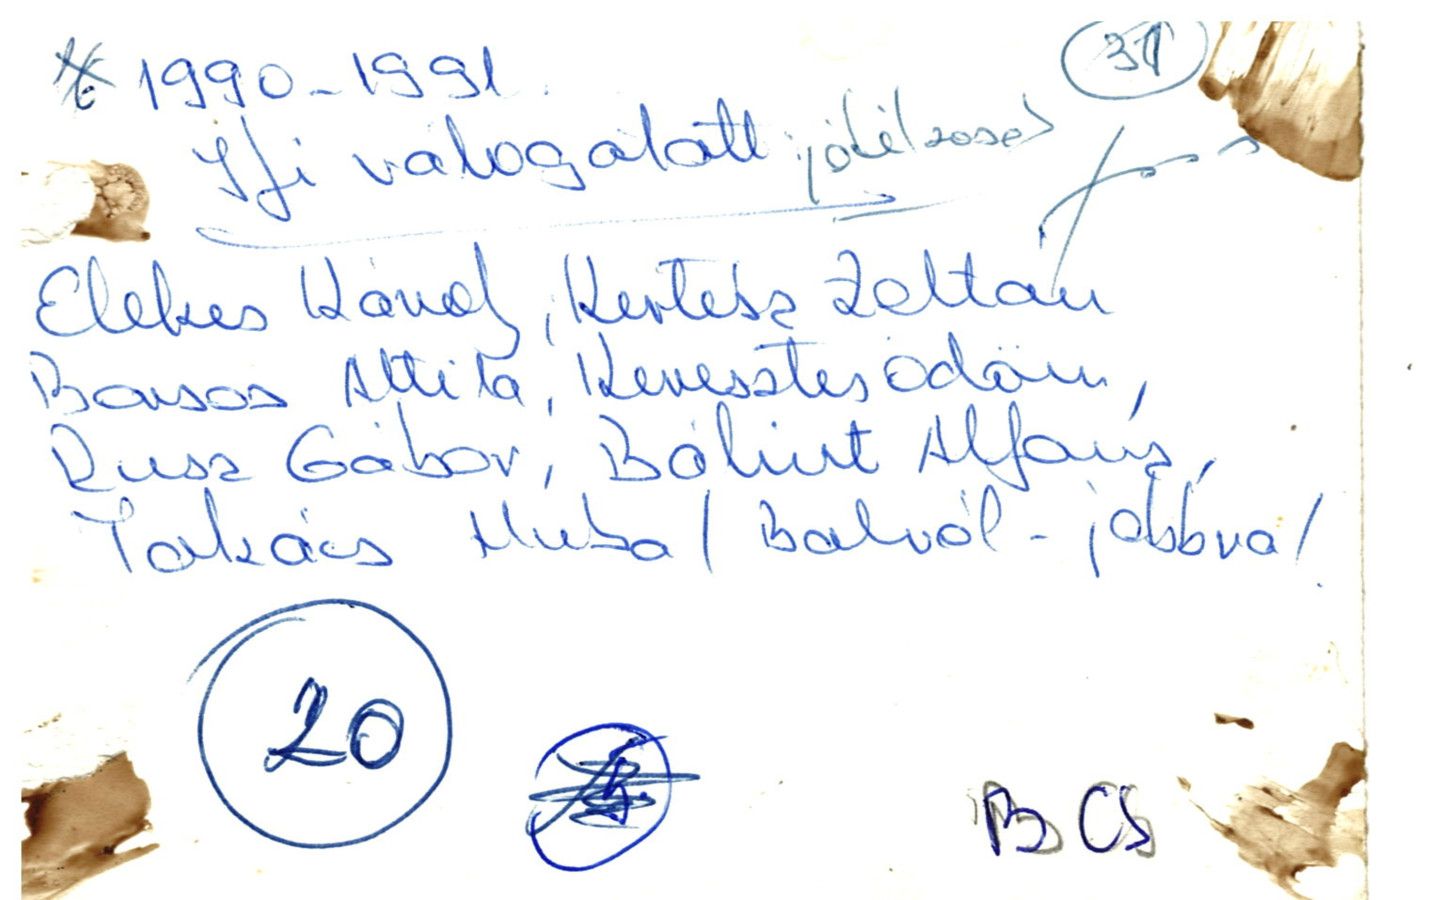 31
1990-1991.
Ifi válogatott
Elekes Károly, Kertész Zoltán
Barsos Attila, Keresztes Ödön,
Rusz Gábor, Bálint Alfonz,
Takács Miksa / Balról - jobbra /
20
B CS